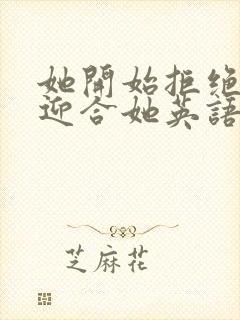 她開始拒绝
迎合她英語
芝麻花